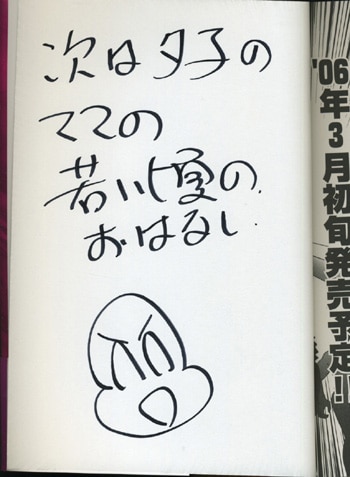 次は夕子の
ママの
若い頃の
おはなし
'06年3月初旬発売予定!!